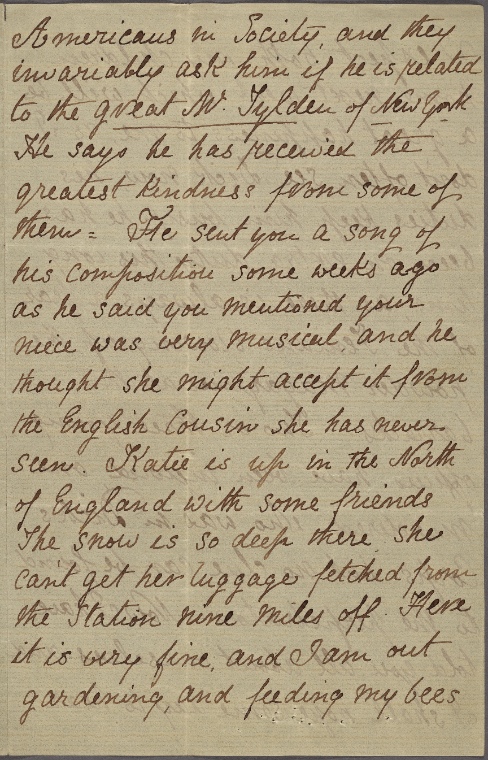 Americans in Society, and they
invariably ask him if he is related
to the great Mr. Tylden of New York
He says he has received the
greatest kindness from some of
them = He sent you a song of
his composition some weeks ago
as he said you mentioned your
niece was very musical and he
thought she might accept it from
the English Cousin she has never
seen. Katie is up in the North
of England with some friends
The snow is so deep there she
can't get her luggage fetched from
the Station nine miles off. Here
it is very fine, and I am out
gardening, and feeding my bees